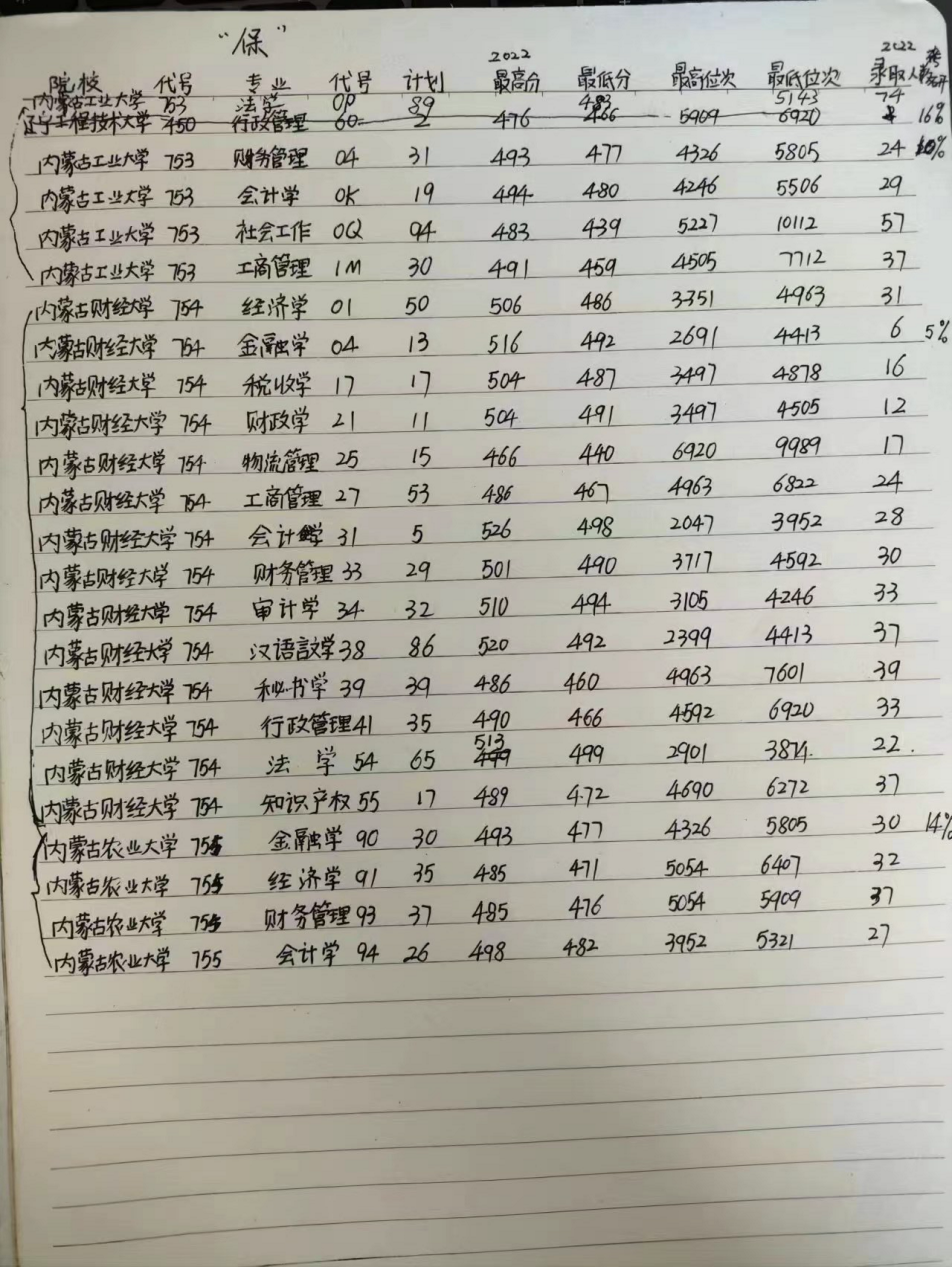 “保”
院校 代号 专业 代号 计划 2022 最高分 最低分 最高位次 最低位次 2022 录取人
内蒙古工业大学 753 法学 0P 89 483 5143 74
辽宁工程技术大学 450 行政管理 60 2 476 466 5909 6920 16%
内蒙古工业大学 753 财务管理 04 31 493 477 4326 5805 24
内蒙古工业大学 753 会计学 0K 19 494 480 4246 5506 29
内蒙古工业大学 753 社会工作 0Q 94 483 439 5227 10112 57
内蒙古工业大学 753 工商管理 1M 30 491 459 4505 7712 37
内蒙古财经大学 754 经济学 01 50 506 486 3351 4963 31
内蒙古财经大学 754 金融学 04 13 516 492 2691 4413 6 5%
内蒙古财经大学 754 税收学 17 17 504 487 3497 4878 16
内蒙古财经大学 754 财政学 21 11 504 491 3497 4505 12
内蒙古财经大学 754 物流管理 25 15 466 440 6920 9989 17
内蒙古财经大学 754 工商管理 27 53 486 467 4963 6822 24
内蒙古财经大学 754 会计学 31 5 526 498 2047 3952 28
内蒙古财经大学 754 财务管理 33 29 501 490 3717 4592 30
内蒙古财经大学 754 审计学 34 32 510 494 3105 4246 33
内蒙古财经大学 754 汉语言文学 38 86 520 492 2399 4413 37
内蒙古财经大学 754 秘书学 39 39 486 460 4963 7601 39
内蒙古财经大学 754 行政管理 41 35 490 466 4592 6920 33
内蒙古财经大学 754 法学 54 65 513 499 2901 3874 22
内蒙古财经大学 754 知识产权 55 17 489 472 4690 6272 37
内蒙古农业大学 755 金融学 90 30 493 477 4326 5805 30 14%
内蒙古农业大学 755 经济学 91 35 485 471 5054 6407 32
内蒙古农业大学 755 财务管理 93 37 485 476 5054 5909 37
内蒙古农业大学 755 会计学 94 26 498 482 3952 5321 27